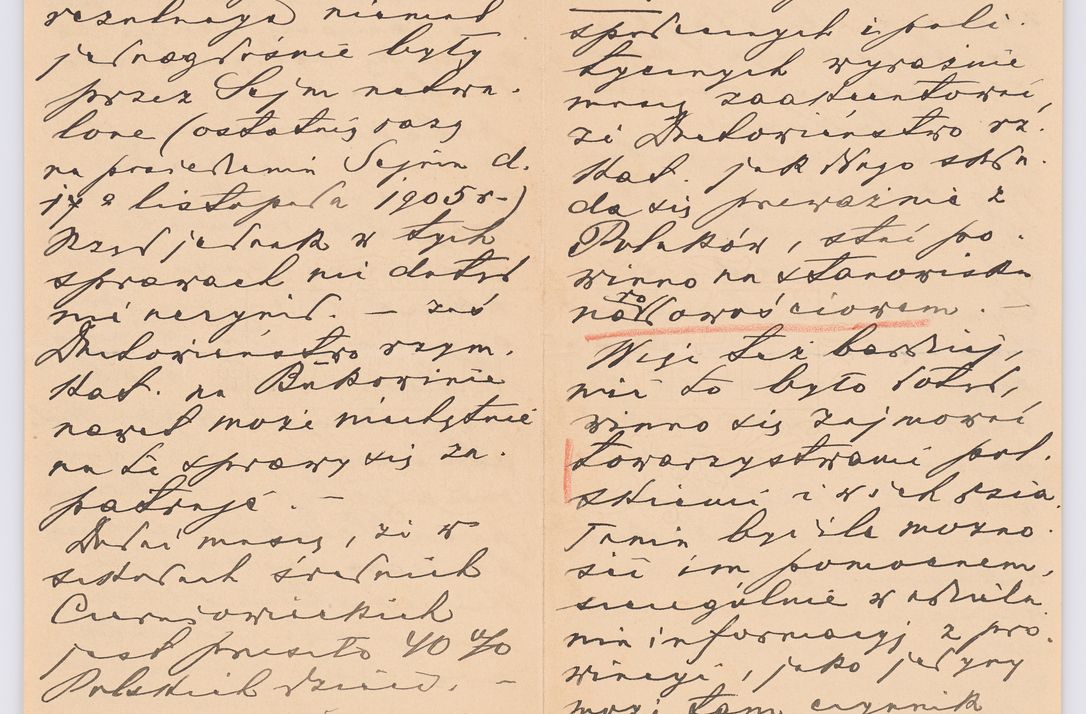 rezolucye niemal
jednogłośnie były
przez Sejm uchwa-
lone (ostatnią razą
na posiedzeniu Sejmu d.
17º listopada 1905 r-)
Rząd jednak w tych
sprawach nic dotąd
nie uczynił. — zaś
Duchowieństwo rzym.
Kat. na Bukowinie
nawet może niechętnie
na te sprawy się za-
patruje. —
Dodać muszę, że w
szkołach średnich
Czerniowieckich
jest przeszło 40 %
Polskich dzieci. —
społecznych i poli-
tycznych wyraźnie
muszę zaakcentować,
że Duchowieństwo rz.
Kat. jako tego skła-
da się przeważnie z
Polaków, stać po-
winno na stanowisku
narodowościowem. —
Więc też bardziej,
niż to było dotąd,
winno się zajmować
towarzystwami pol-
skiemi i w ich dzia-
łaniu być ile możno-
ści im pomocnem,
szczególnie w udziela-
niu informacyj z pro-
wincyi, jako jedyny
może tam czynnik